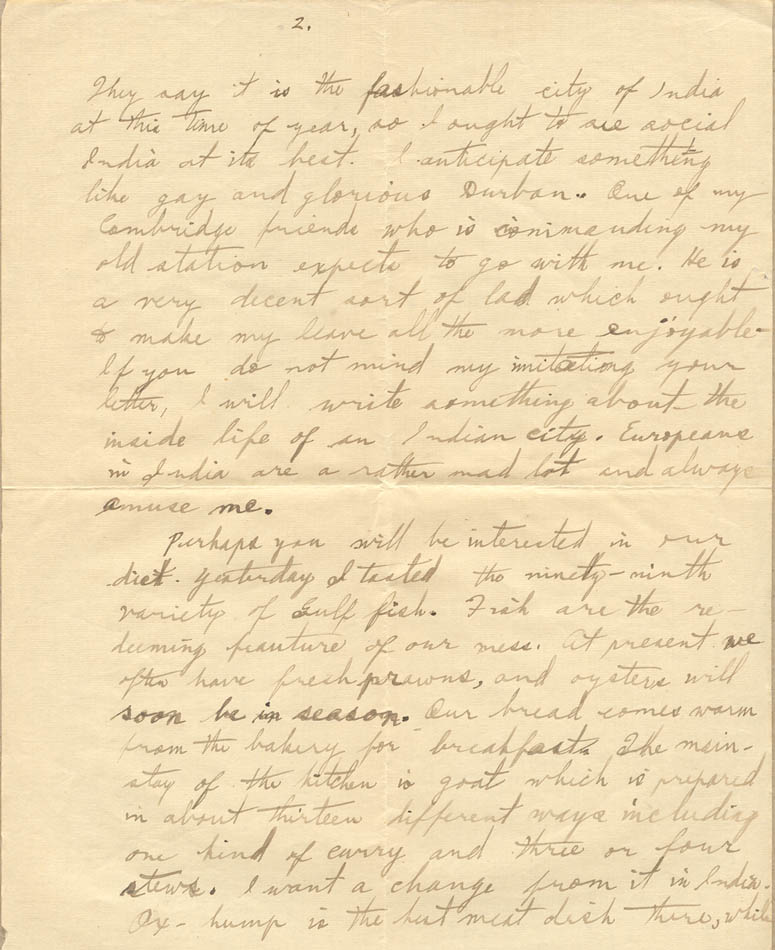 2.
They say it is the fashionable city of India
at this time of year, so I ought to see social
India at its best. I anticipate something
like gay and glorious Durban. One of my
Cambridge friends who is commanding my
old station expects to go with me. He is
a very decent sort of lad which ought
to make my leave all the more enjoyable.
If you do not mind my imitating your
letter, I will write something about the
inside life of an Indian city. Europeans
in India are a rather mad lot and always
amuse me.
Perhaps you will be interested in our
diet. Yesterday I tasted the ninety-ninth
variety of Gulf fish. Fish are the re-
deeming feauture of our mess. At present we
often have fresh prawns, and oysters will
soon be in season. Our bread comes warm
from the bakery for breakfast. The main-
stay of the kitchen is goat which is prepared
in about thirteen different ways including
one kind of curry and three or four
stews. I want a change from it in India.
Ox-hump is the best meat dish there, while